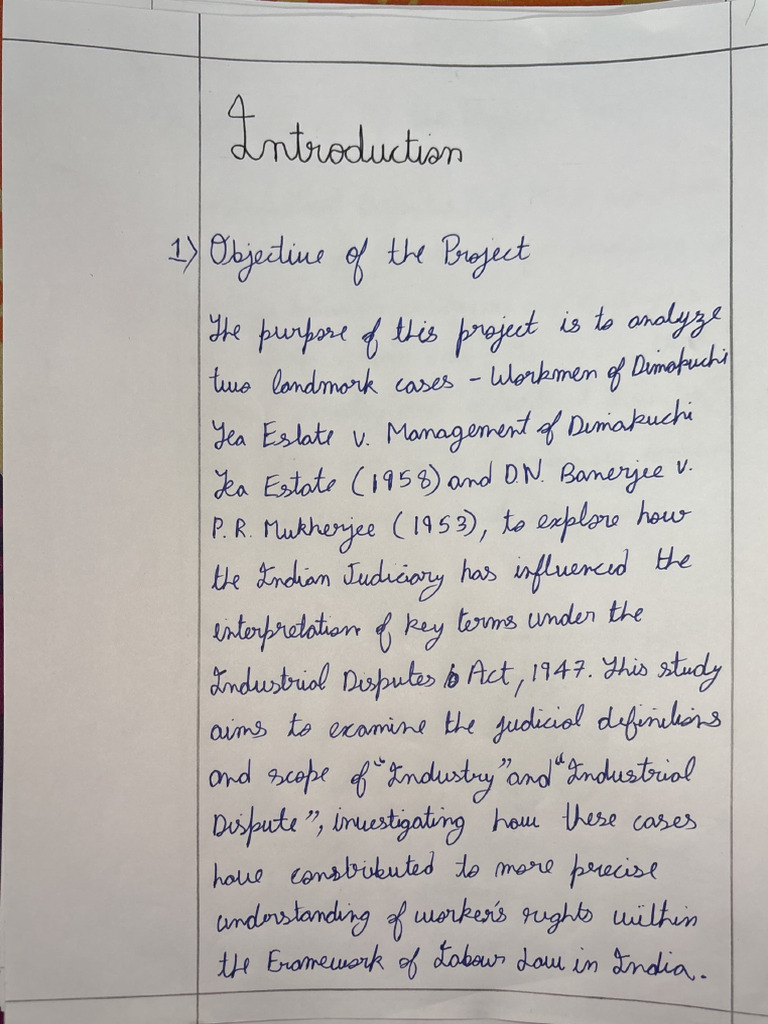 Introduction
1) Objective of the Project
The purpose of this project is to analyze
two landmark cases - Workmen of Dimakuchi
Tea Estate v. Management of Dimakuchi
Tea Estate (1958) and D.N. Banerjee v.
P.R. Mukherjee (1953), to explore how
the Indian Judiciary has influenced the
interpretation of key terms under the
Industrial Disputes Act, 1947. This study
aims to examine the judicial definitions
and scope of "Industry" and "Industrial
Dispute", investigating how these cases
have constributed to more precise
understanding of worker's rights within
the Eramework of Labour Law in India.